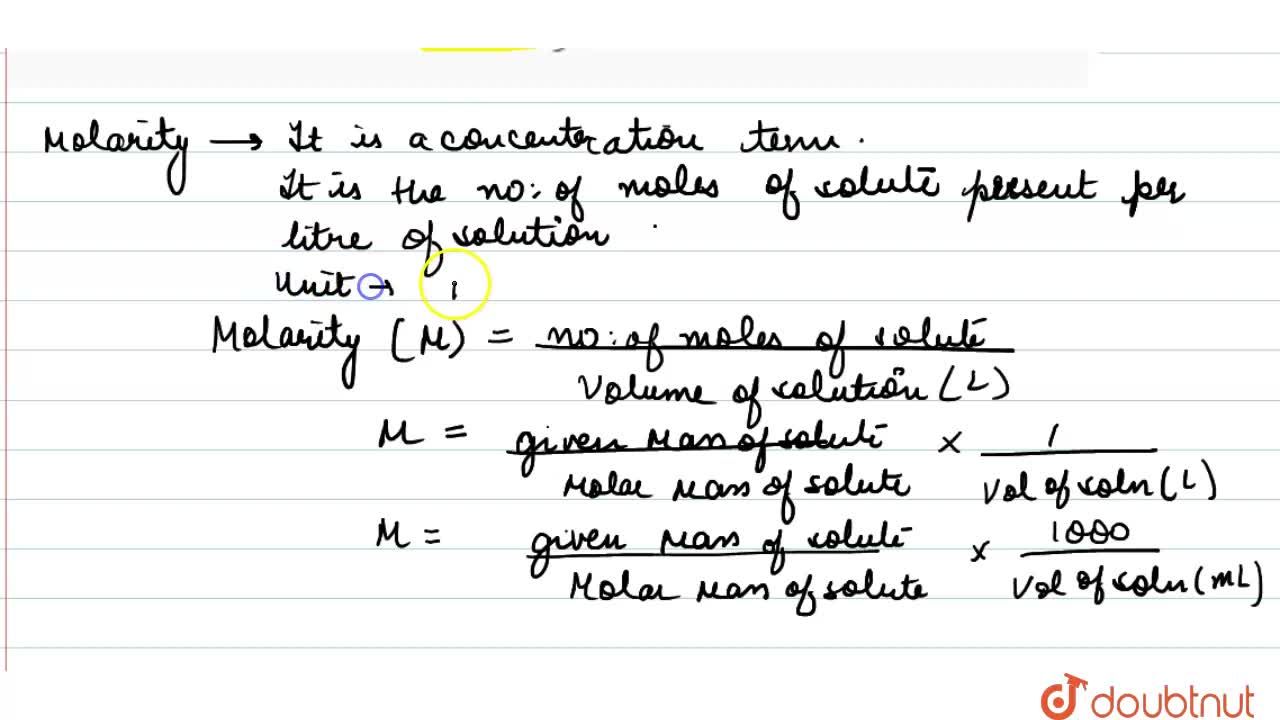 Molarity → It is a concentration term.
It is the no: of moles of solute present per
litre of solution.
Unit →
Molarity (M) = no: of moles of solute / Volume of solution (L)
M = given mass of solute / Molar mass of solute × 1 / Vol of soln (L)
M = given mass of solute / Molar mass of solute × 1000 / Vol of soln (mL)
doubtnut